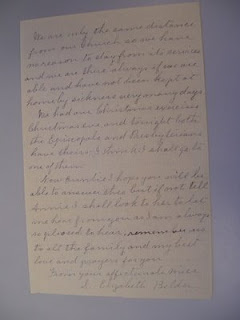 We are only the same distance
from our Church so we have
no reason to stay from its services
and we are there always if we are
able and have not been kept at
home by sickness very many days
We had our Christmas exercises
Christmas eve and tonight both
the Episcopals and Presbyterians
have theirs. I think I shall go to
one of them.
Now Auntie I hope you will be
able to answer this but if not tell
Annie I shall look to her to let
me hear from you as I am always
so pleased to hear, remember me
to all the family and my best
love and prayers for you
From your affectionate niece
Elizabeth Belden